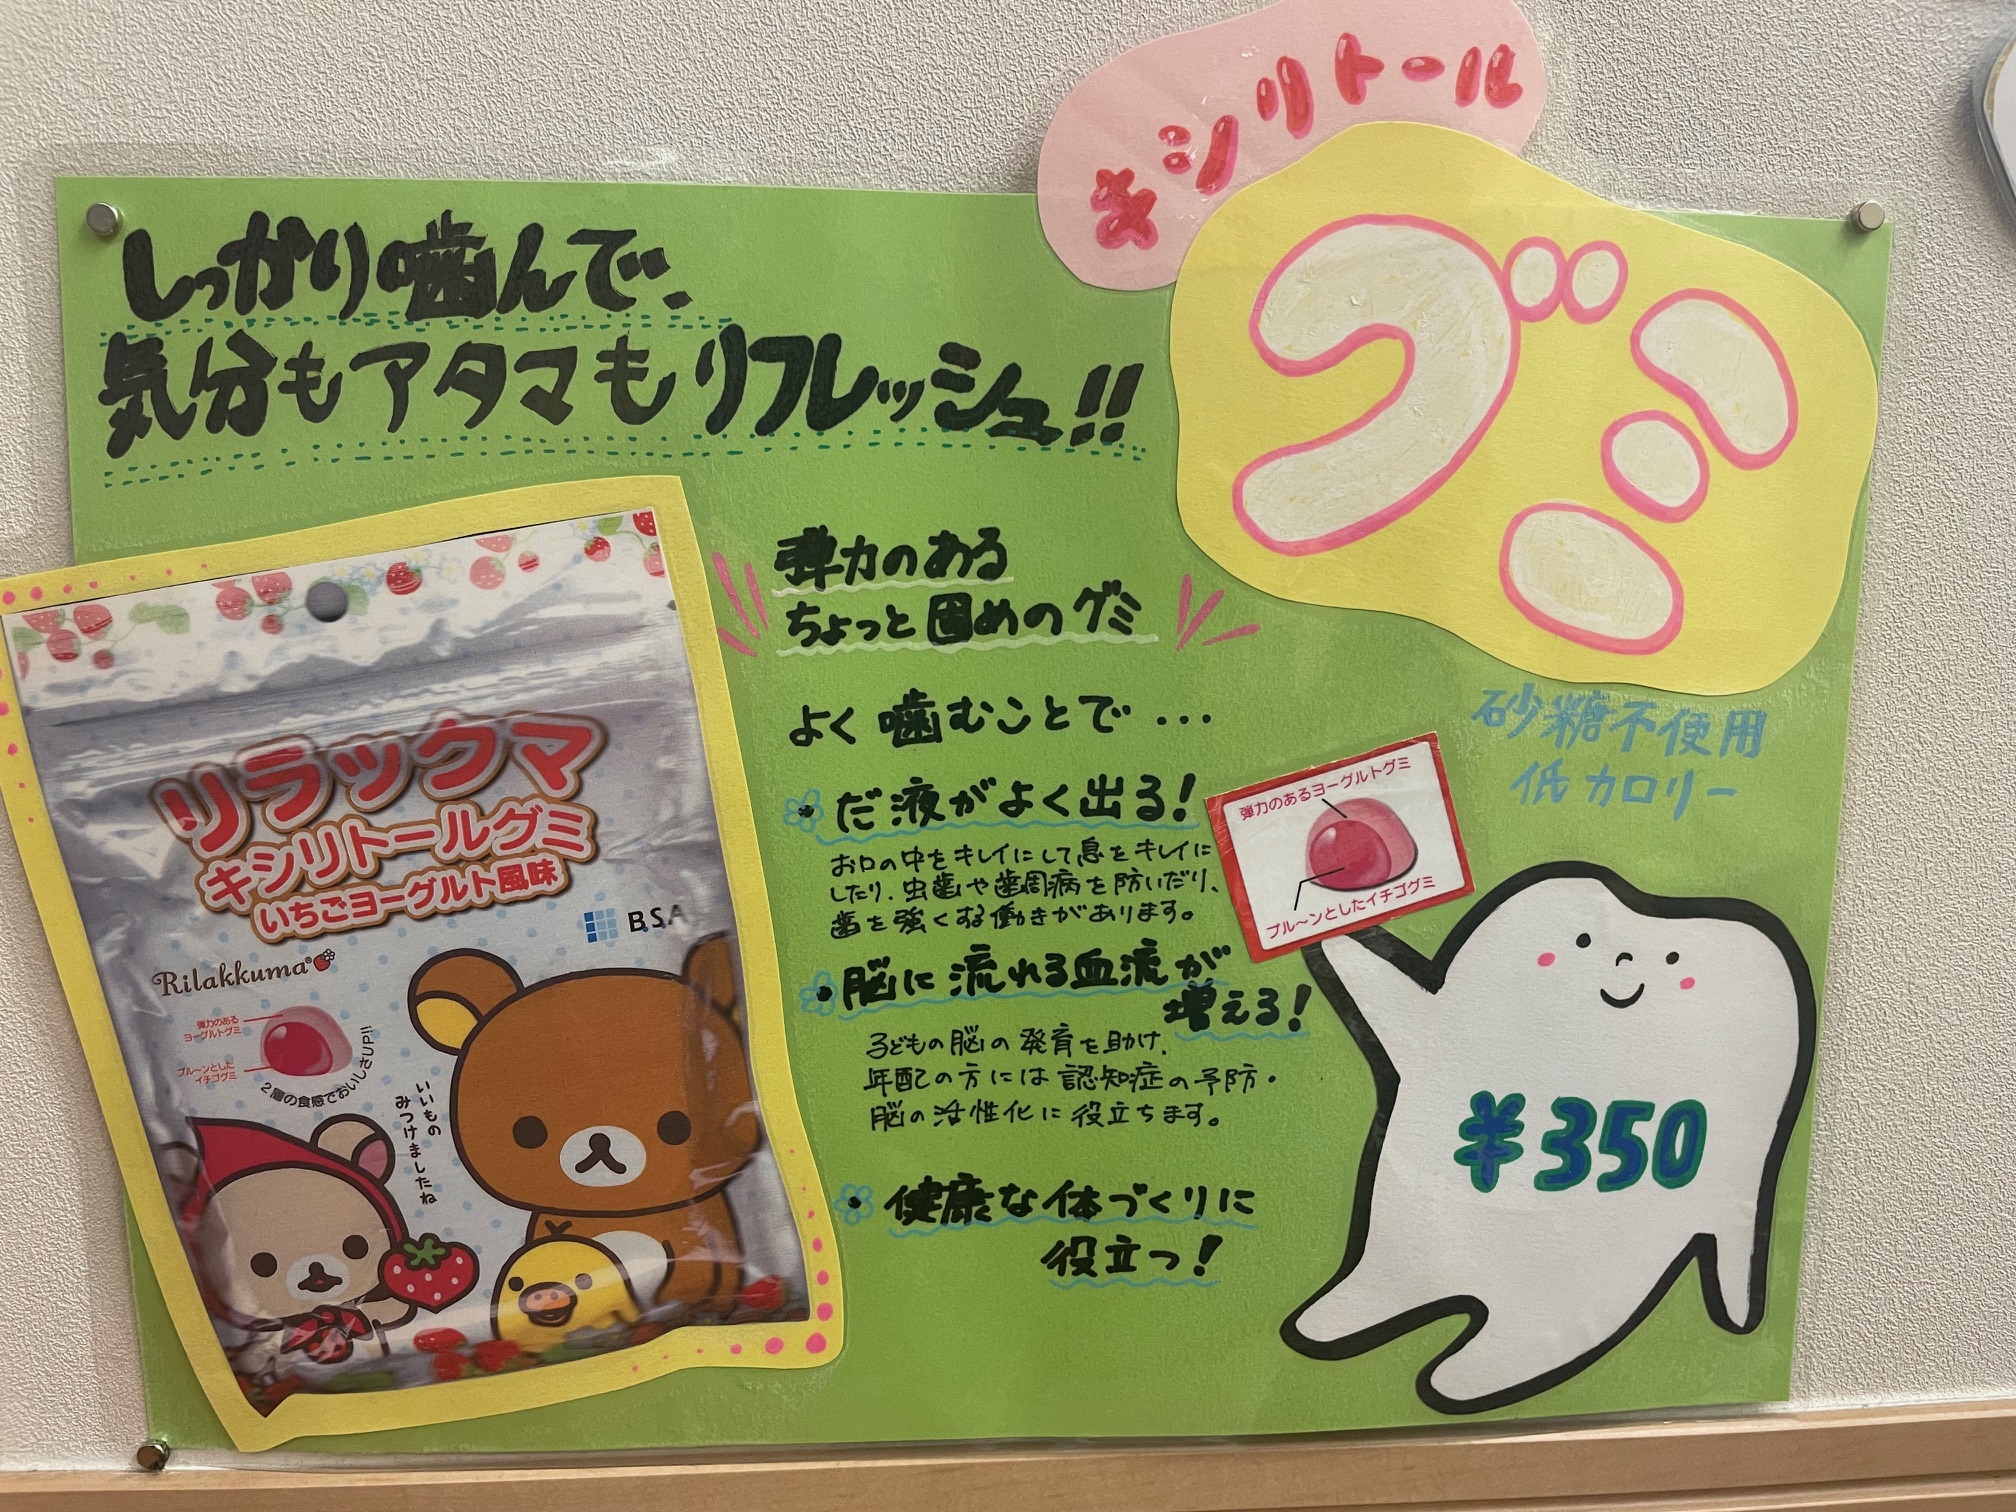 キシリトール
グミ
しっかり噛んで、
気分もアタマもリフレッシュ!!
弾力のある
ちょっと固めのグミ
よく噛むことで...
・だ液がよく出る!
お口の中をキレイにして、息をキレイに
したり、虫歯や歯周病を防いだり、
歯を強くする働きがあります。
・脳に流れる血流が
増える!
子どもの脳の発育を助け、
年配の方には認知症の予防・
脳の活性化に役立ちます。
・健康な体づくりに
役立つ!
砂糖不使用
低カロリー
弾力のあるヨーグルトグミ
プル〜ンとしたイチゴグミ
¥350
リラックマ
キシリトールグミ
いちごヨーグルト風味
B.S.A
Rilakkuma®
弾力のある
ヨーグルトグミ
プル〜ンとした
イチゴグミ
2層の食感でおいしさUP!!
いいもの
みつけましたね